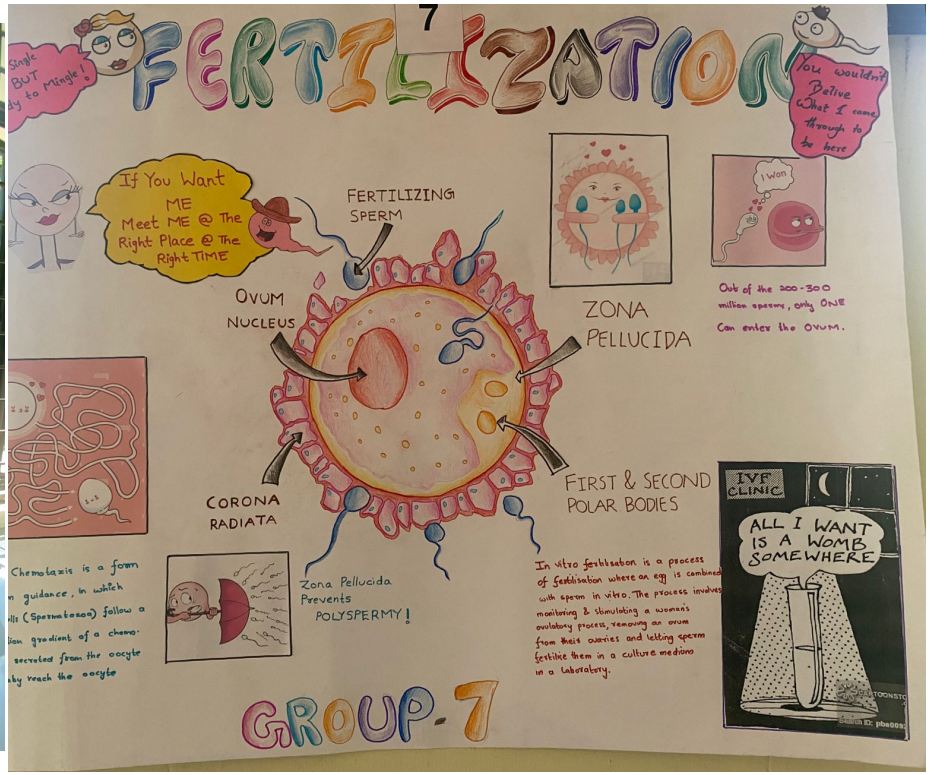 7
FERTILIZATION
Single
BUT
dy to Mingle!
You wouldn't
Belive
What I came
through to
be here
If You Want
ME
Meet ME @ The
Right Place @ The
Right TIME
FERTILIZING
SPERM
I Won
Out of the 200-300
million sperms, only ONE
Can enter the OVUM.
OVUM
NUCLEUS
ZONA
PELLUCIDA
CORONA
RADIATA
FIRST & SECOND
POLAR BODIES
Chemotaxis is a form
guidance, in which
(Spermatozoa) follow a
gradient of a chemo-
secreted from the oocyte
reach the oocyte
Zona Pellucida
Prevents
POLYSPERMY!
In vitro fertilisation is a process
of fertilisation where an egg is combined
with sperm in vitro. The process involves
monitoring & stimulating a woman's
ovulatory process, removing an ovum
from their ovaries and letting sperm
fertilise them in a culture medium
in a laboratory.
IVF
CLINIC
ALL I WANT
IS A WOMB
SOMEWHERE
CARTOONSTO
Search ID:
GROUP-7